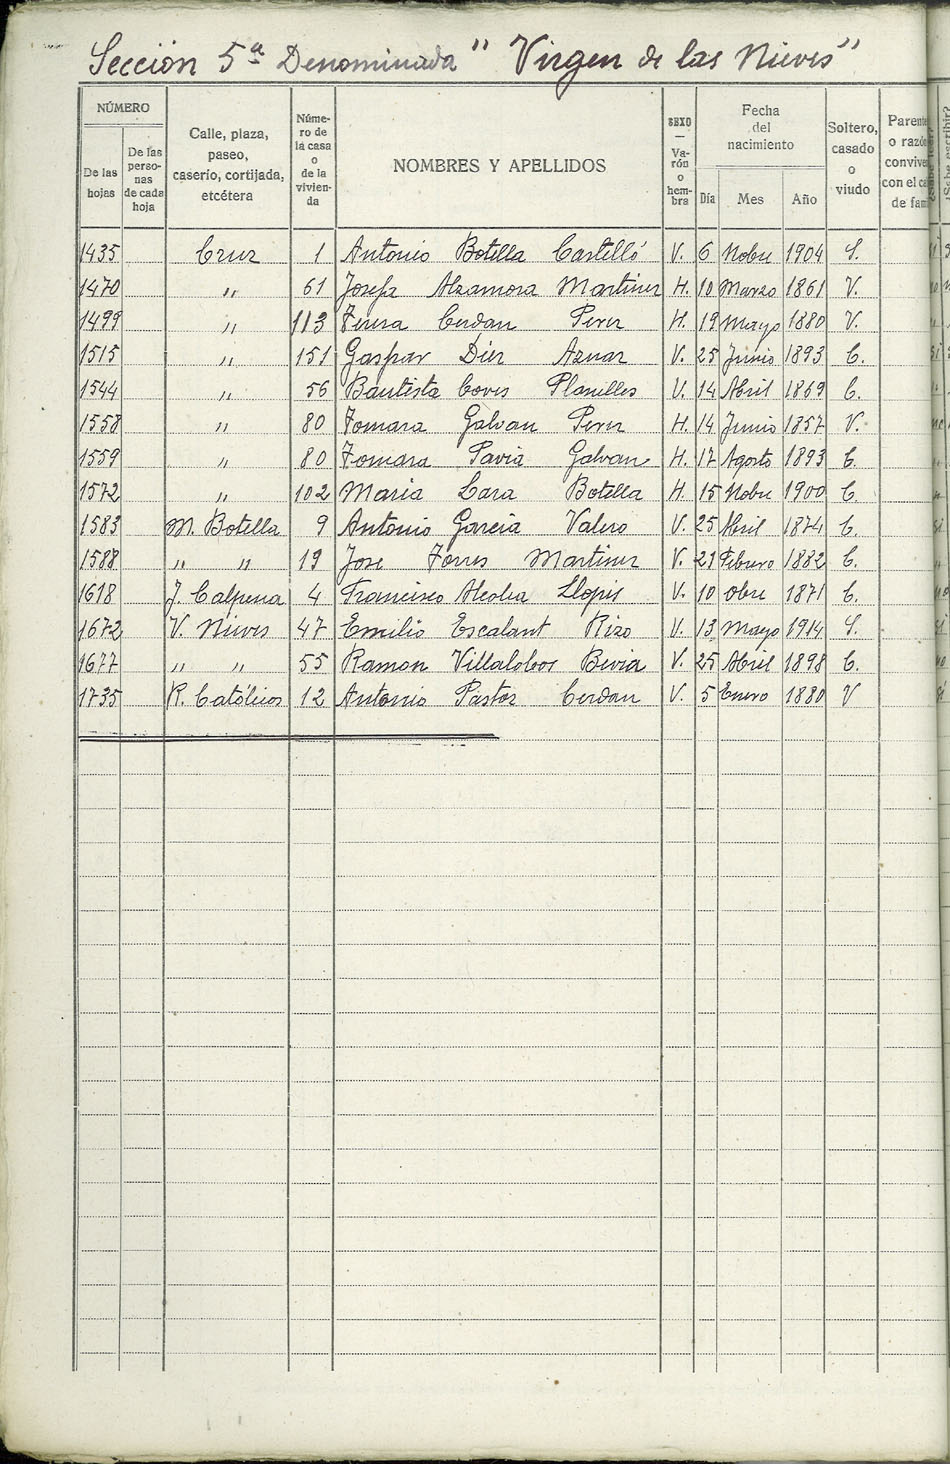 Sección 5ª Denominada " Virgen de las Nieves"
NÚMERO
De las hojas
De las perso- nas de cada hoja
Calle, plaza, paseo, caserío, cortijada, etcétera
Núme- ro de la casa o de la vivien- da
NOMBRES Y APELLIDOS
SEXO — Va- rón o hem- bra
Fecha del nacimiento
Día Mes Año
Soltero, casado o viudo
Parente o razó convive con el ca de fam
1435 Cruz 1 Antonio Botella Castelló V. 6 Nobre 1904 S.
1470 " 61 Josefa Alzamora Martinez H. 10 Marzo 1861 V.
1499 " 113 Teresa Cerdan Perez H. 19 Mayo 1880 V.
1515 " 151 Gaspar Diez Aznar V. 25 Junio 1893 C.
1544 " 56 Bautista Coves Planelles V. 14 Abril 1869 C.
1558 " 80 Tomara Galvan Perez H. 14 Junio 1857 V.
1559 " 80 Tomara Pavia Galvan H. 17 Agosto 1893 C.
1572 " 102 Maria Lara Botella H. 15 Nobre 1900 C.
1583 M. Botella 9 Antonio Garcia Valero V. 25 Abril 1874 C.
1588 " " 19 Jose Torres Martinez V. 21 Febrero 1882 C.
1618 J. Calpena 4 Francisco Alcolea Llopis V. 10 Obre 1871 C.
1672 V. Nieves 47 Emilio Escalant Rizo V. 13 Mayo 1914 S.
1677 " " 55 Ramon Villalobos Bevia V. 25 Abril 1898 C.
1735 R. Católicos 12 Antonio Pastor Cerdan V. 5 Enero 1880 V